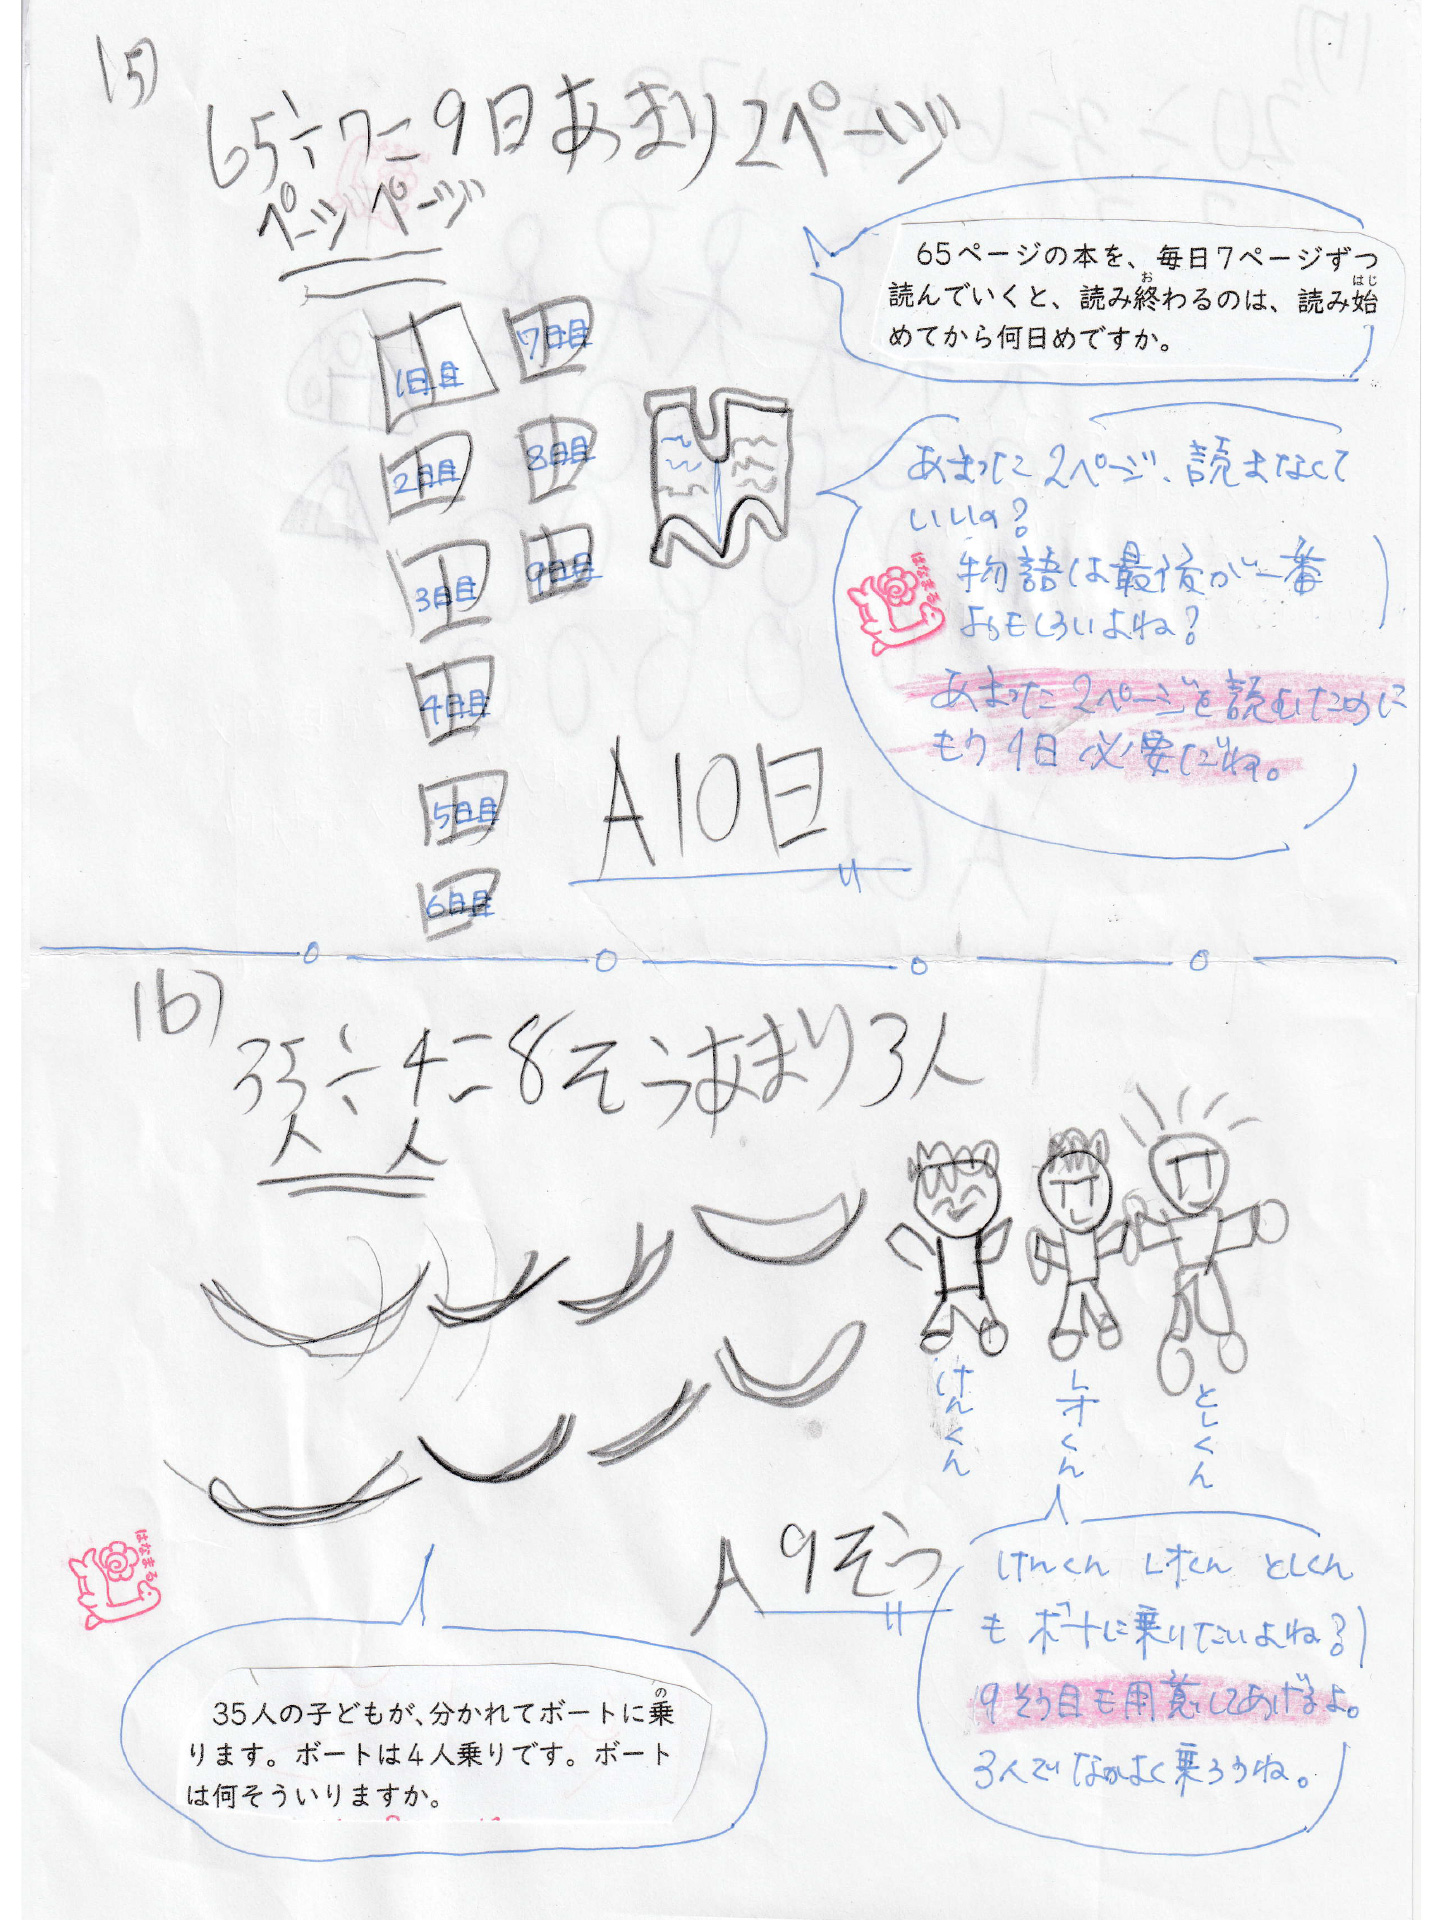 15)
65÷7=9日あまり2ページ
ページ ページ
65ページの本を、毎日7ページずつ
読んでいくと、読み終わるのは、読み始
めてから何日めですか。
お
はじ
1日目
2日目
3日目
4日目
5日目
6日目
7日目
8日目
9日目
あまった2ページ、読まなくて
いいの?
物語は最後が一番
おもしろいよね?
あまった2ページを読むために
もう1日必要だね。
はなまる
A10日
16)
35÷4=8そうあまり3人
人 人
けんくん
レオくん
としくん
A 9そう
けんくん レオくん としくん
もボートに乗りたいよね?
9そう目も用意してあげるよ。
3人でなかよく乗ろうね。
はなまる
の
35人の子どもが、分かれてボートに乗
ります。ボートは4人乗りです。ボート
は何そういりますか。